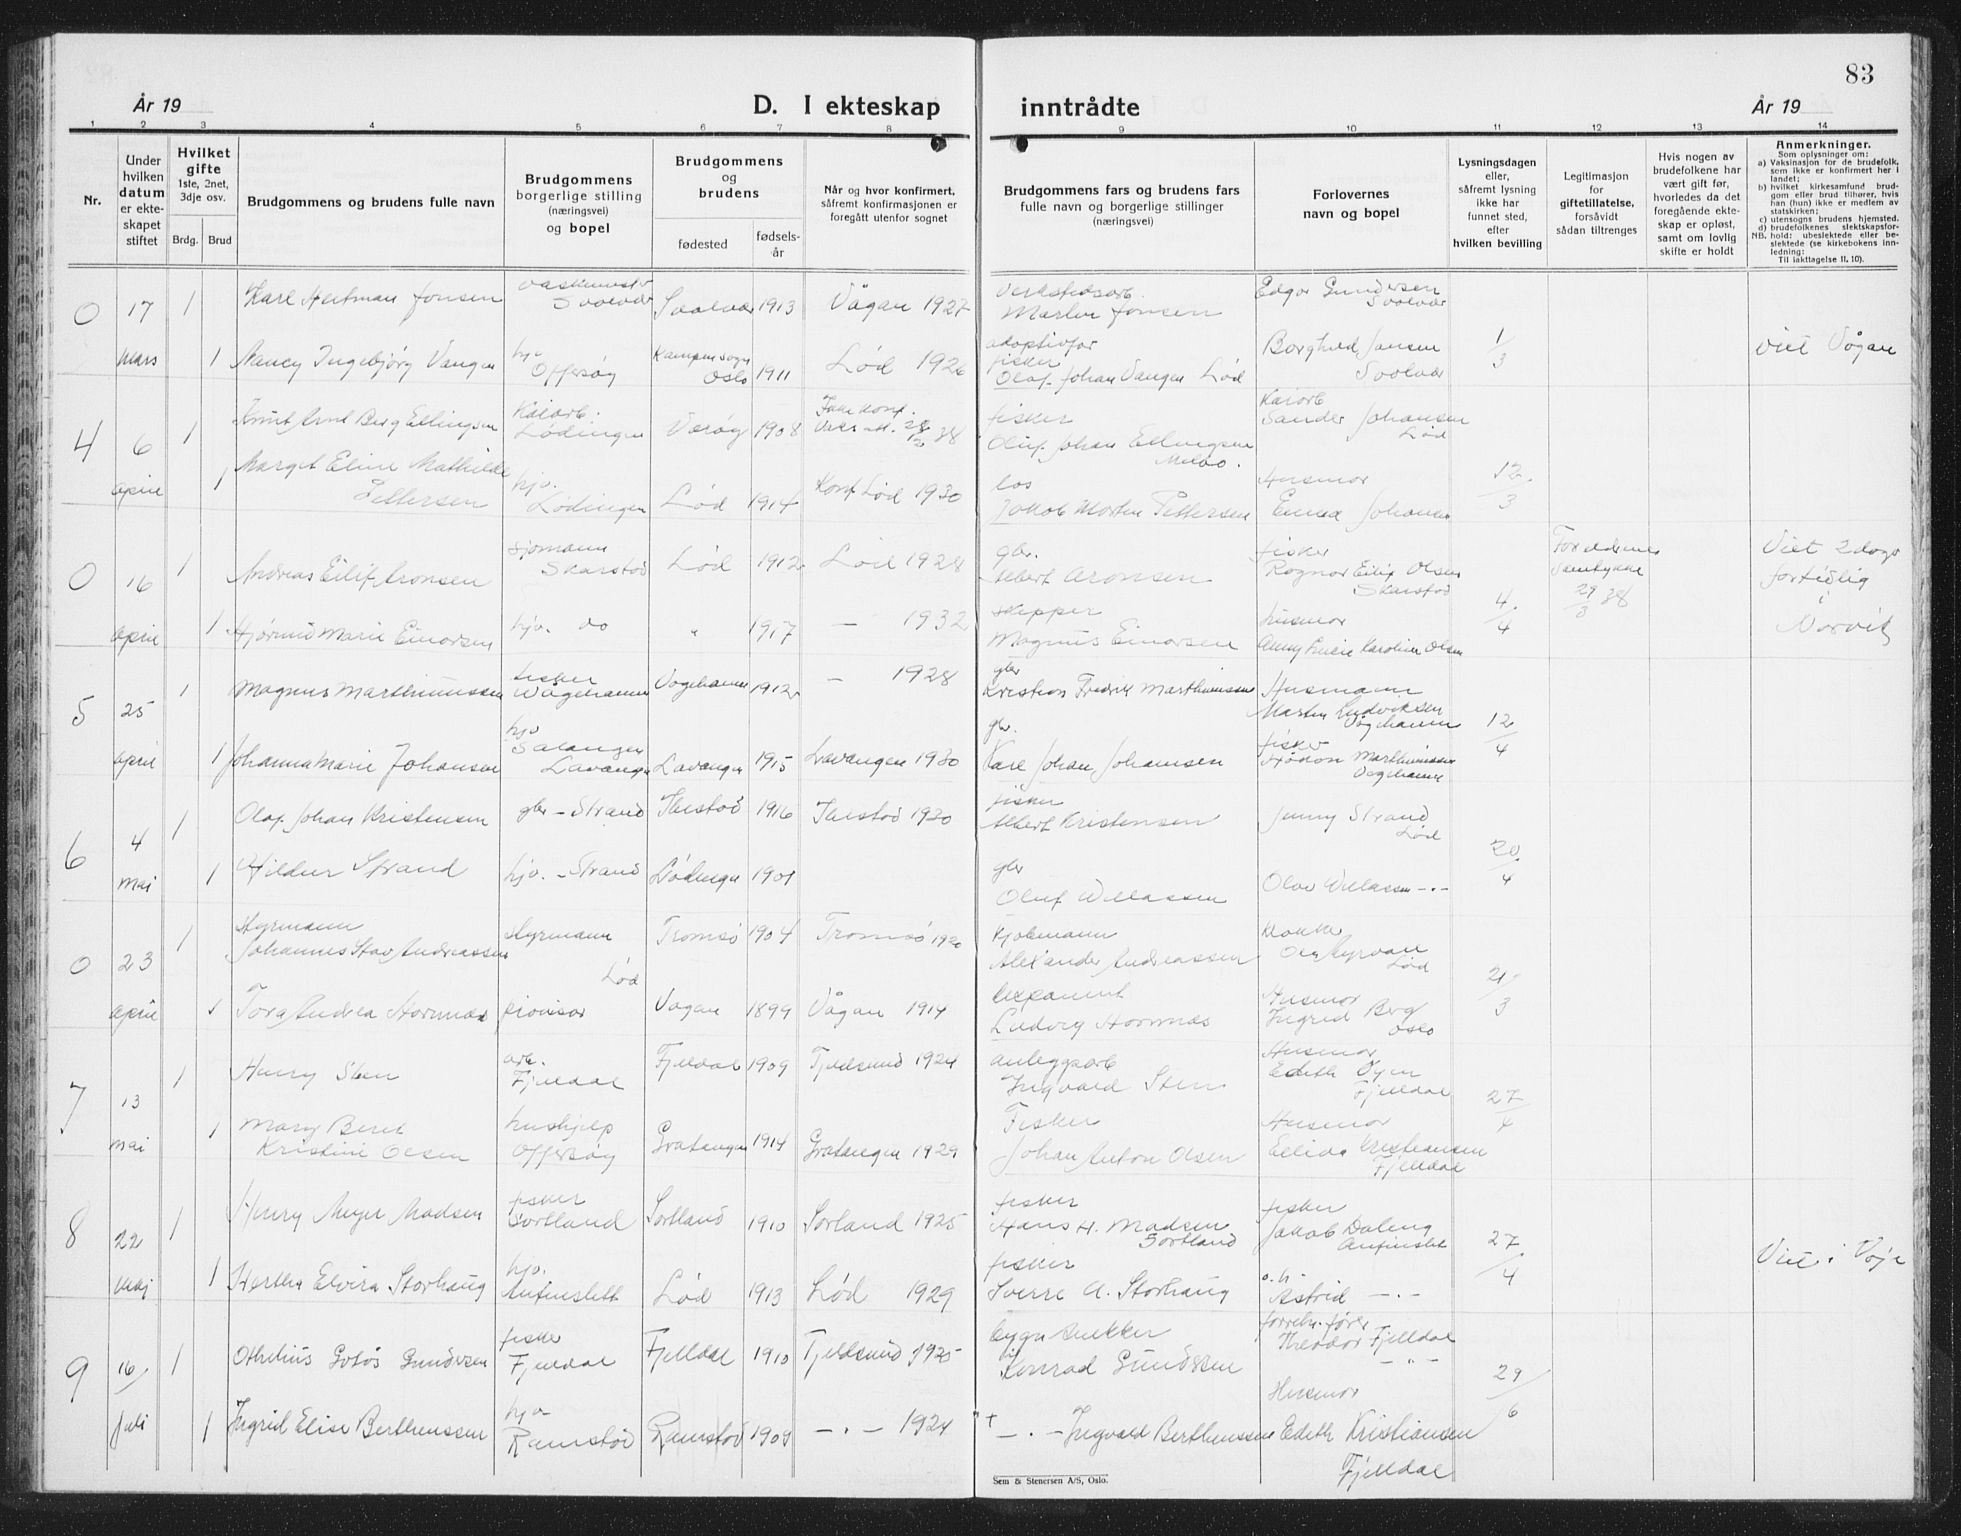 83
År 19
D. I ekteskap inntrådte
År 19
1 2 3 4 5 6 7 8 9 10 11 12 13 14
Nr.
Under hvilken datum er ekte-skapet stiftet
Hvilket gifte
1ste, 2net, 3dje osv.
Brdg. Brud
Brudgommens og brudens fulle navn
Brudgommens borgerlige stilling (næringsvei) og bopel
Brudgommens og brudens
fødested
fødsels-år
Når og hvor konfirmert, såfremt konfirmasjonen er foregått utenfor sognet
Brudgommens fars og brudens fars fulle navn og borgerlige stillinger (næringsvei)
Forlovernes navn og bopel
Lysningsdagen eller, såfremt lysning ikke har funnet sted, efter hvilken bevilling
Legitimasjon for giftetillatelse, forsåvidt sådan tiltrenges
Hvis nogen av brudefolkene har vært gift før, hvorledes da det foregående ekte-skap er opløst, samt om lovlig skifte er holdt
Anmerkninger.
Som oplysninger om:
a) Vaksinasjon for de brudefolk, som ikke er konfirmert her i landet;
b) hvilket kirkesamfund brud-gom eller brud tilhører, hvis han (hun) ikke er medlem av statskirken;
c) utensogns brudens hjemsted.
d) brudefolkenes slektskapsfor-hold: ubeslektede eller be-slektede (se kirkebokens inn-ledning:
NB.
Til iakttagelse II. 10).
0 17 mars 1 Karl Hertman Jonsen Svolvær Svolvær 1913 Vågan 1927 Verkstedsarb. Martin Jonsen Edgar Gundersen Svolvær
1 Nancy Ingebjørg Vangen hjv Offersøy Kampen sogn Oslo 1911 Lød 1926 adoptivfar fisker Olaf Johan Vangen Lød Borghild Jansen Svolvær 1/3 Viet Vågan
4 6 april 1 Knut Arnt Berg Ellingsen Kaiarb. Lødingen Værøy 1908 Ikke konf. Fisker Oluf Johan Ellingsen Melbo. Kaiarb Sander Johansen Lød
1 Margit Eline Mathilde Pettersen hjv. Lødingen Lød 1914 Konf Lød 1930 los Jakob Martin Pettersen Husmor Emma Johansen 12/3
0 16 april 1 Andreas Eilif Aronsen Sjømann Skarstad Lød 1912 Lød 1928 gbr. Albert Aronsen fisker Ragnar Eilif Olsen Skarstad Foreldrenes samtykke 29/3 38 Viet 2 dage fortidlig i Narvik
1 Hjørund Marie Einarsen hjv. do " 1917 — 1932 skipper Magnus Einarsen husmor Karoline Olsen 4/4
5 25 april 1 Magnus Marthinussen fisker Vågehamn Vågehamn 1912 — 1928 gbr Kristian Fredrik Marthinussen Husmann Martin Ludviksen Vågehamn
1 Johanna Marie Johansen hjv Salangen Lavangen Lavangen 1915 Lavangen 1930 gbr. Karl Johan Johansen fisker Marthinussen Vågehamn 12/4
6 4 mai 1 Olaf Johan Kristensen gbr - Strand Ibestad 1916 Ibestad 1930 fisker Albert Kristensen Jenny Strand Lød
1 Hildur Strand hjv. - Strand Lødingen 1901 gbr Oluf Willassen Olav Willassen -"- 20/4
0 23 april 1 Styrmann Johannes Stav Andreassen Styrmann Lød Tromsø 1904 Tromsø 1920 Kjøbmann Alexander Andreassen Lød
1 Tora Andrea Hornnæs Vågan 1899 Vågan 1914 Ludvig Hornnæs Husmor Ingrid Berg Oslo 21/3
7 13 mai 1 Henry Sten arb. Fjelldal Fjelldal 1909 Tjeldsund 1924 anleggsarb Ingvald Sten Husmor Edith Øyen Fjelldal
1 Mary Beret Kristine Olsen hushjelp Offersøy Gratangen 1914 Gratangen 1929 Fisker Johan Anton Olsen Husmor Ellida Kristiansen Fjelldal 27/4
8 22 maj 1 Henry Meyer Madsen fisker Sortland Sortland 1910 Sortland 1925 fisker Hans H. Madsen Sortland fisker Jakob Daleng Anfinslet
1 Hertha Elvira Storhaug hjv. Anfinslett Lød 1913 Lød 1929 fisker Sverre A. Storhaug Astrid -"- 27/4 Viet i
9 16/juli 1 Othelius Gotås Gundersen fisker Fjelldal Fjelldal 1910 Tjeldsund 1925 Konrad Gundersen forretn. fører Theodor Fjelldal -"-
1 Ingrid Elise Berthenssen hjv Ramstad Ramstad 1909 -"- 1924 + -"- Ingvald Berthenssen Husmor Edith Kristiansen Fjelldal 29/6
Sem & Stenersen A/S, Oslo.